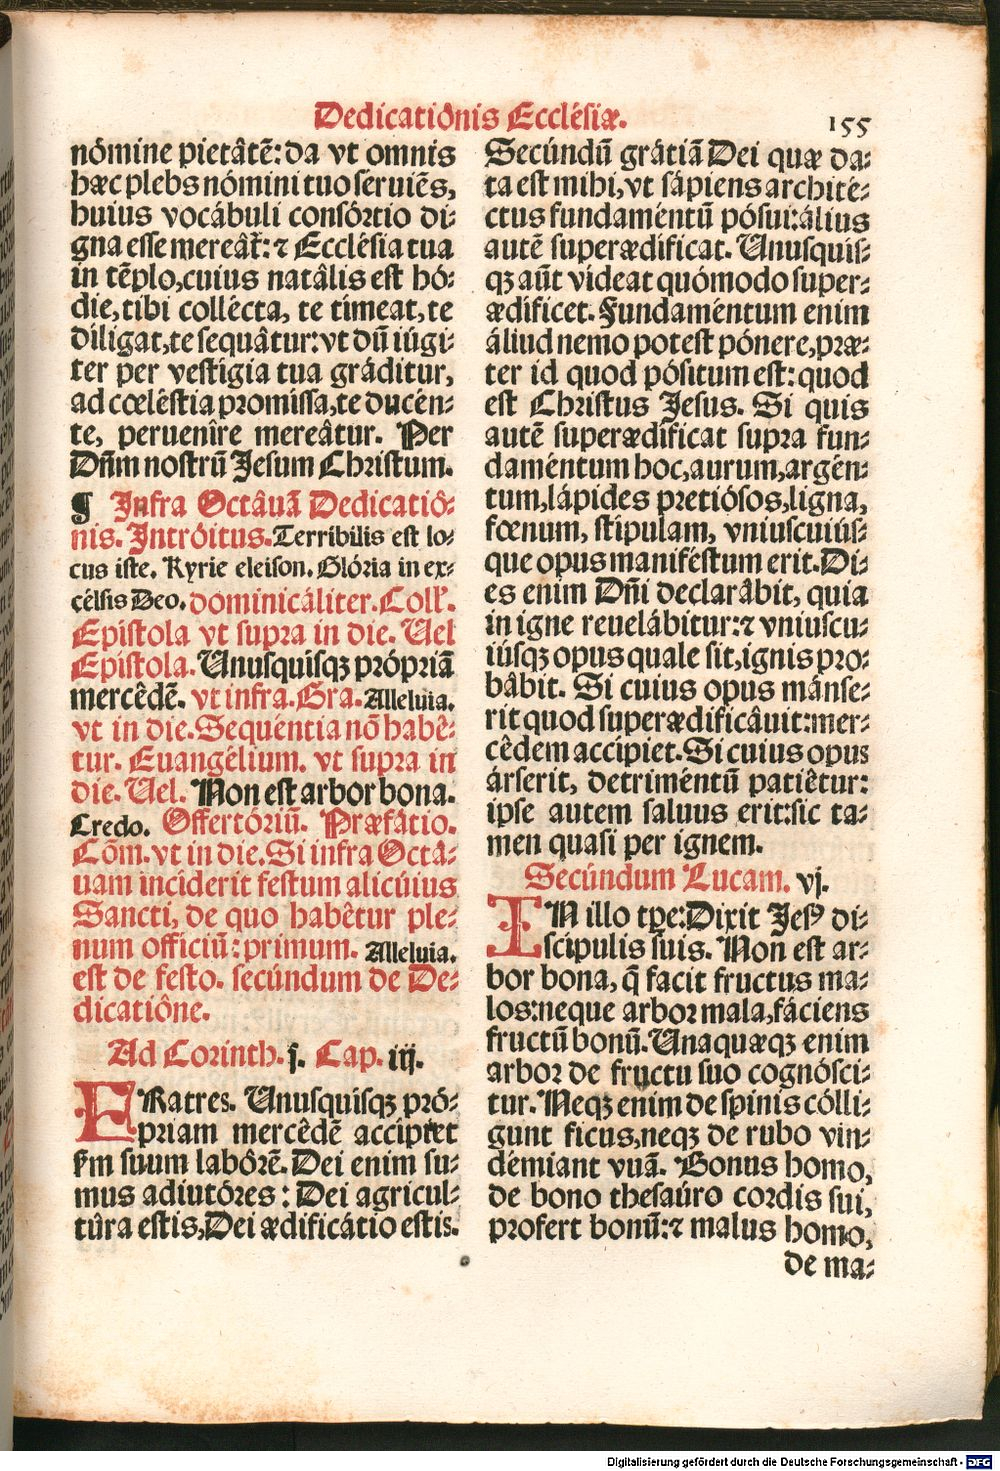 Dedicatiônis Ecclésiæ.
155
nómine pietâtē: da vt omnis
hæc plebs nómini tuo seruiēs,
huius vocábuli consórtio di-
gna esse mereāt᷑: ⁊ Ecclésia tua
in tēplo, cuius natâlis est hó-
die, tibi collécta, te timeat, te
díligat, te sequâtur: vt dū iúgi-
ter per vestígia tua gráditur,
ad cœléstia promissa, te ducén-
te, peruenîre mereâtur. Per
Dñm nostrū Jesum Christum.
¶ Infra Octâuā Dedicatiô-
nis. Intróitus. Terribilis est lo-
cus iste. Kyrie eleison. Glória in ex-
célsis Deo. dominicáliter. Coll'.
Epistola vt supra in die. Vel
Epistola. Vnusquisqꝫ própriā
mercêdē. vt infra. Gra. Alleluia.
vt in die. Sequéntia nō habê-
tur. Euangélium. vt supra in
die. Vel. Non est arbor bona.
Credo. Offertóriū. Præfátio.
Cōm. vt in die. Si infra Octâ-
uam incíderit festum alicúius
Sancti, de quo habêtur ple-
num officiū: primum. Alleluia.
est de festo. secúndum de De-
dicatiône.
Ad Corinth. j. Cap. iij.
FRatres. Vnusquisqꝫ pró-
priam mercêdē accipiet
s̄m suum labôrē. Dei enim su-
mus adiutóres: Dei agricul-
tûra estis, Dei ædificátio estis.
Secúndū grátiā Dei quæ da-
ta est mihi, vt sápiens archité-
ctus fundaméntū pósui: álius
autē superædíficat. Vnusquis-
qꝫ aūt vídeat quómodo super-
ædíficet. Fundaméntum enim
áliud nemo potest pónere, præ-
ter id quod pósitum est: quod
est Christus Jesus. Si quis
autē superædíficat supra fun-
daméntum hoc, aurum, argén-
tum, lápides pretiósos, ligna,
fœnum, stípulam, vniuscuiús-
que opus maniféstum erit. Di-
es enim Dñi declarâbit, quia
in igne reuelábitur: ⁊ vniuscu-
iúsqꝫ opus quale sit, ignis pro-
bâbit. Si cuius opus mánse-
rit quod superædificâuit: mer-
cêdem accipiet. Si cuius opus
árserit, detriméntū patiêtur:
ipse autem saluus erit: sic ta-
men quasi per ignem.
Secúndum Lucam. vj.
IN illo tꝑe: Dixit Jesꝰ di-
scipulis suis. Non est ar-
bor bona, q̄ facit fructus ma-
los: neque arbor mala, fáciens
fructū bonū. Vnaquæqꝫ enim
arbor de fructu suo cognósci-
tur. Neqꝫ enim de spinis cólli-
gunt ficus, neqꝫ de rubo vin-
démiant vuā. Bonus homo,
de bono thesaúro cordis sui,
profert bonū: ⁊ malus homo,
de ma-
Digitalisierung gefördert durch die Deutsche Forschungsgemeinschaft - DFG